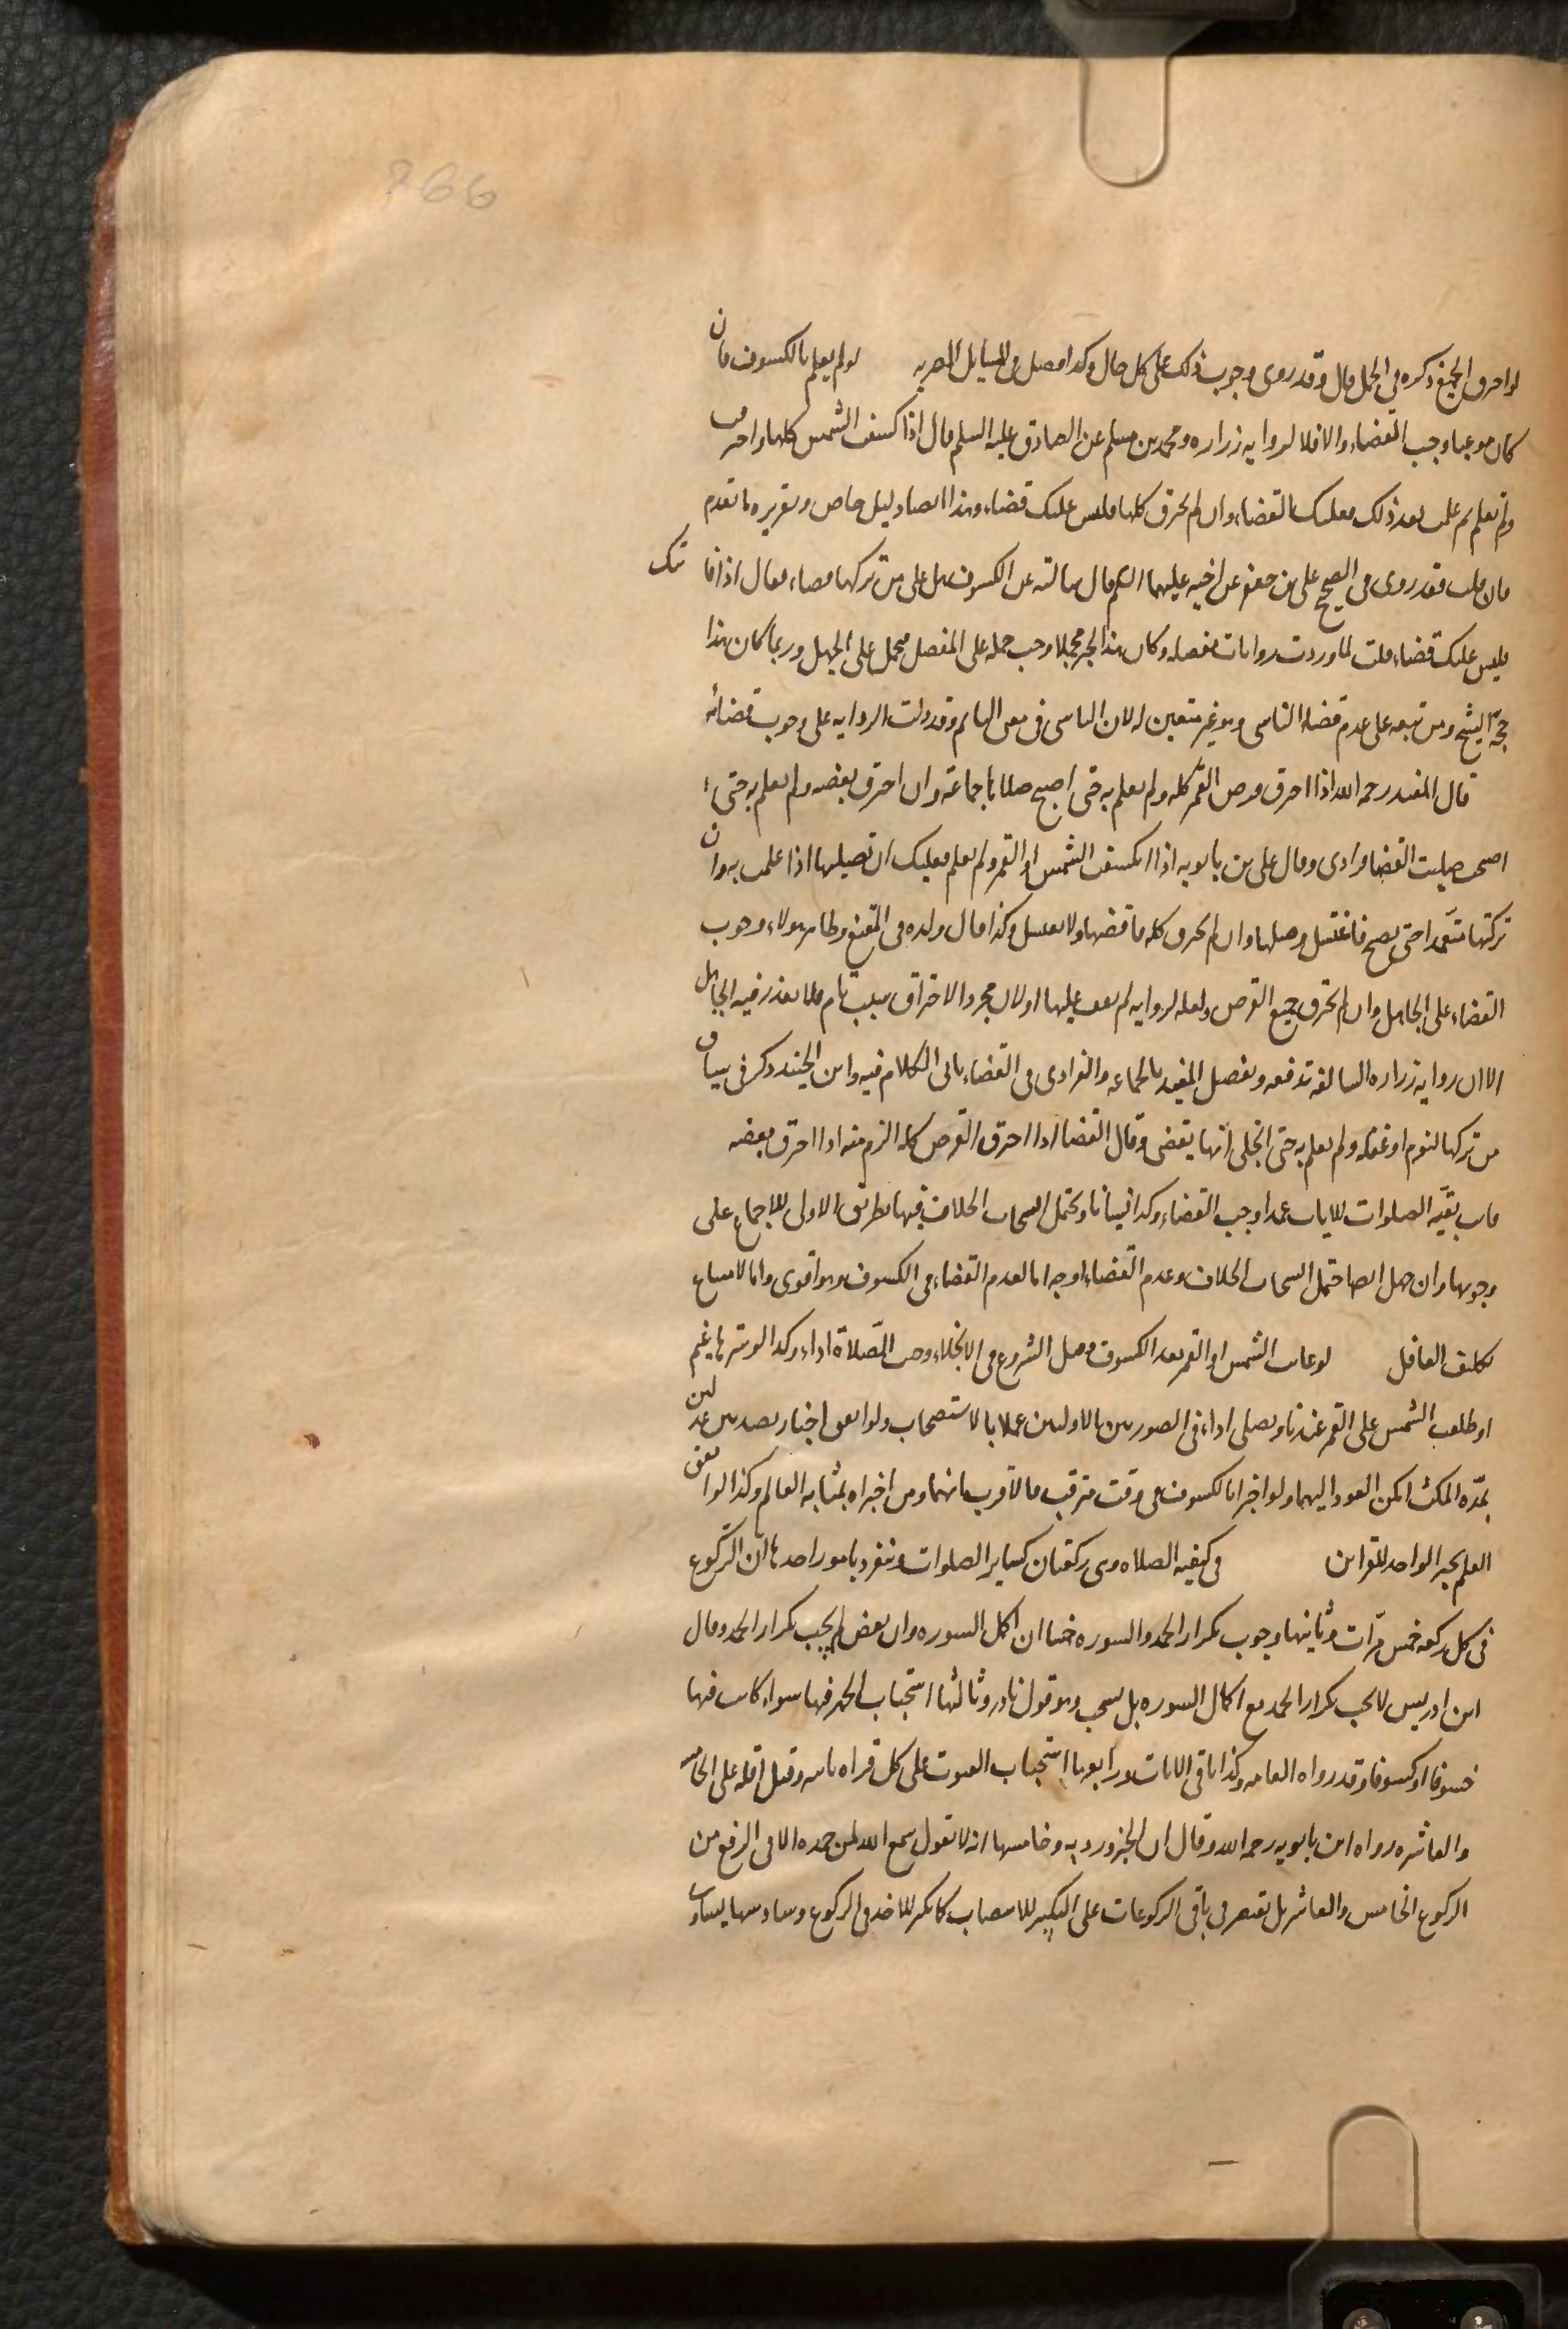 266
لو احترق الجميع ذكره فى الجمل قال وقد روى وجوب ذلك على كل حال وكذا فصل فى المسايل المصريه لو لم يعلم بالكسوف فان
كان موعبا وجب القضاء والا فلا لروايه زراره ومحمد بن مسلم عن الصادق عليه السلم قال اذا كسفت الشمس كلها واحترقت
ولم تعلم ثم علمت بعد ذلك فعليك القضاء وان لم تحترق كلها فليس عليك قضاء وهذا ايضا دليل خاص وتقريره ما تقدم
فان قلت فقد روى فى الصحيح على بن جعفر عن اخيه عليهما السلم قال سالته عن الكسوف هل على من تركها قضاء فقال اذا فاتتك
فليس عليك قضاء قلت لما وردت روايات مفصله وكان هذا الخبر مجملا وجب حمله على المفصل فيحمل على الجهل وربما كان هذا
حجّة الشيخ ومن تبعه على عدم قضاء الناسى وهو غير متعين له لان الناسى فى معنى النايم وقد دلت الروايه على وجوب قضائه
قال المفيد رحمه الله اذا احترق قرص القمر كله ولم تعلم به حتى اصبح صلاها جماعة وان احترق بعضه ولم تعلم به حتى
اصبحت صليت القضا فرادى وقال على بن بابويه اذا انكسفت الشمس او القمر ولم تعلم فعليك ان تصليها اذا علمت به وان
تركتها متعمدا حتى تصبح فاغتسل وصلها وان لم يحترق كله فاقضها ولا تغتسل وكذا قال ولده فى المقنع وظاهر هولاء وجوب
القضاء على الجاهل وان لم يحترق جميع القرص ولعله لروايه لم نقف عليها او لان مجرد الاحتراق سبب تام فلا يعذر فيه الجاهل
الا ان روايه زراره السالفة تدفعه وتفصيل المفيد بالجماعه والفرادى فى القضاء ياتى الكلام فيه وابن الجنيد ذكر فى سياق
من تركها لنوم او غفله ولم يعلم به حتى انجلى انها يقضى وقال القضا اذا احترق القرص كله الزم منه اذا احترق بعضه
فاتت بقيّه الصلوات للايات عمدا وجب القضاء وكذا نسيانا ويحتمل انسحاب الخلاف فيها بطريق الاولى للاجماع على
وجوبها وان جهل ايضا احتمل انسحاب الخلاف وعدم القضاء اوجه اما لعدم القضاء فى الكسوف وهو اقوى واما لامتناع
تكليف الغافل لو غابت الشمس او القمر بعد الكسوف وقبل الشروع فى الانجلاء وجبت الصّلاة اداء وكذا لو سترها غيم
او طلعت الشمس على القمر عندنا ويصلى اداء فى الصورتين الاوليين عملا بالاستصحاب ولو اتفق اخبار رصديين عدلين
بمدّه المكث امكن العود اليهما ولو اخبرا بالكسوف فى وقت مترقب فالاقرب انهما ومن اخبراه بمثابه العالم وكذا لو اتفق
العلم بخبر الواحد للقراين فى كيفيه الصلاه وهى ركعتان كساير الصلوات وتنفرد بامور احدها ان الركوع
فى كل ركعه خمس مرّات وثانيها وجوب تكرار الحمد والسوره خمسا ان اكمل السوره وان بعض لم يجب تكرار الحمد وقال
ابن ادريس لا يجب تكرار الحمد مع اكمال السوره بل يستحب وهو قول نادر وثالثها استحباب الجهر فيها سواء كانت فيها
خسوفا او كسوفا وقد رواه العامه وكذا باقى الايات ورابعها استحباب القنوت على كل قراه ثانيه وقيل اقله على الخامسه
والعاشره رواه ابن بابويه رحمه الله وقال ان الخبر ورد به وخامسها انه لا تقول سمع الله لمن حمده الا فى الرفع من
الركوع الخامس والعاشر بل تقتصر فى باقى الركوعات على التكبير للانتصاب كما تكبر للاخذ فى الركوع وسادسها يساوى